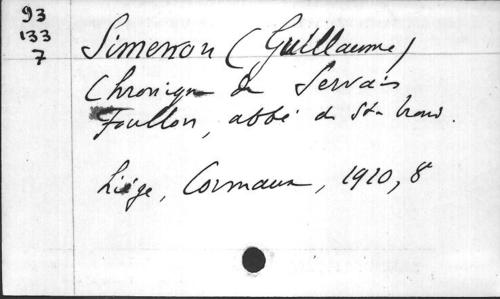 93
133
7
Simenon (Guillaume)
Chronique de Servais
Foullon, abbé de St-Trond.
Liége, Cormaux, 1910, 8°